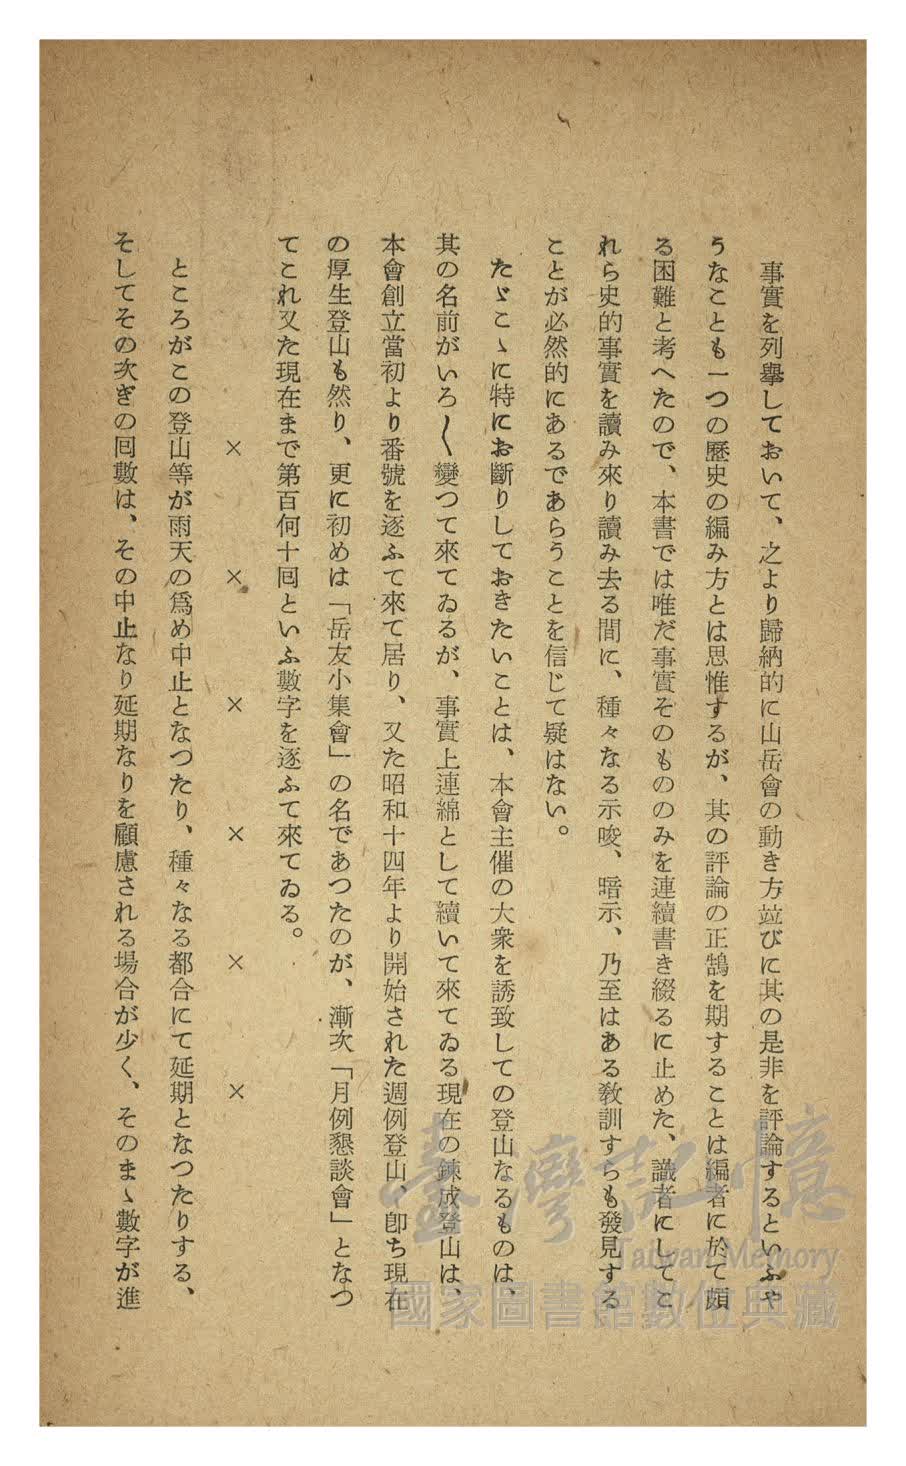 事實を列擧しておいて、之より歸納的に山岳會の動き方竝びに其の是非を評論するといふや
うなことも一つの歷史の編み方とは思惟するが、其の評論の正鵠を期することは編者に於て頗
る困難と考へたので、本書では唯だ事實そのもののみを連續書き綴るに止めた、識者にしてこ
れら史的事實を讀み來り讀み去る間に、種々なる示唆、暗示、乃至はある敎訓すらも發見する
ことが必然的にあるであらうことを信じて疑はない。
たゞこゝに特にお斷りしておきたいことは、本會主催の大衆を誘致しての登山なるものは、
其の名前がいろ〱變つて來てゐるが、事實上連綿として續いて來てゐる現在の鍊成登山は、
本會創立當初より番號を逐ふて來て居り、又た昭和十四年より開始された週例登山、卽ち現在
の厚生登山も然り、更に初めは「岳友小集會」の名であつたのが、漸次「月例懇談會」となつ
てこれ又た現在まで第百何十囘といふ數字を逐ふて來てゐる。
× × × × × ×
ところがこの登山等が雨天の爲め中止となつたり、種々なる都合にて延期となつたりする、
そしてその次ぎの囘數は、その中止なり延期なりを顧慮される場合が少く、そのまゝ數字が進
臺灣記憶
Taiwan Memory
國家圖書館數位典藏